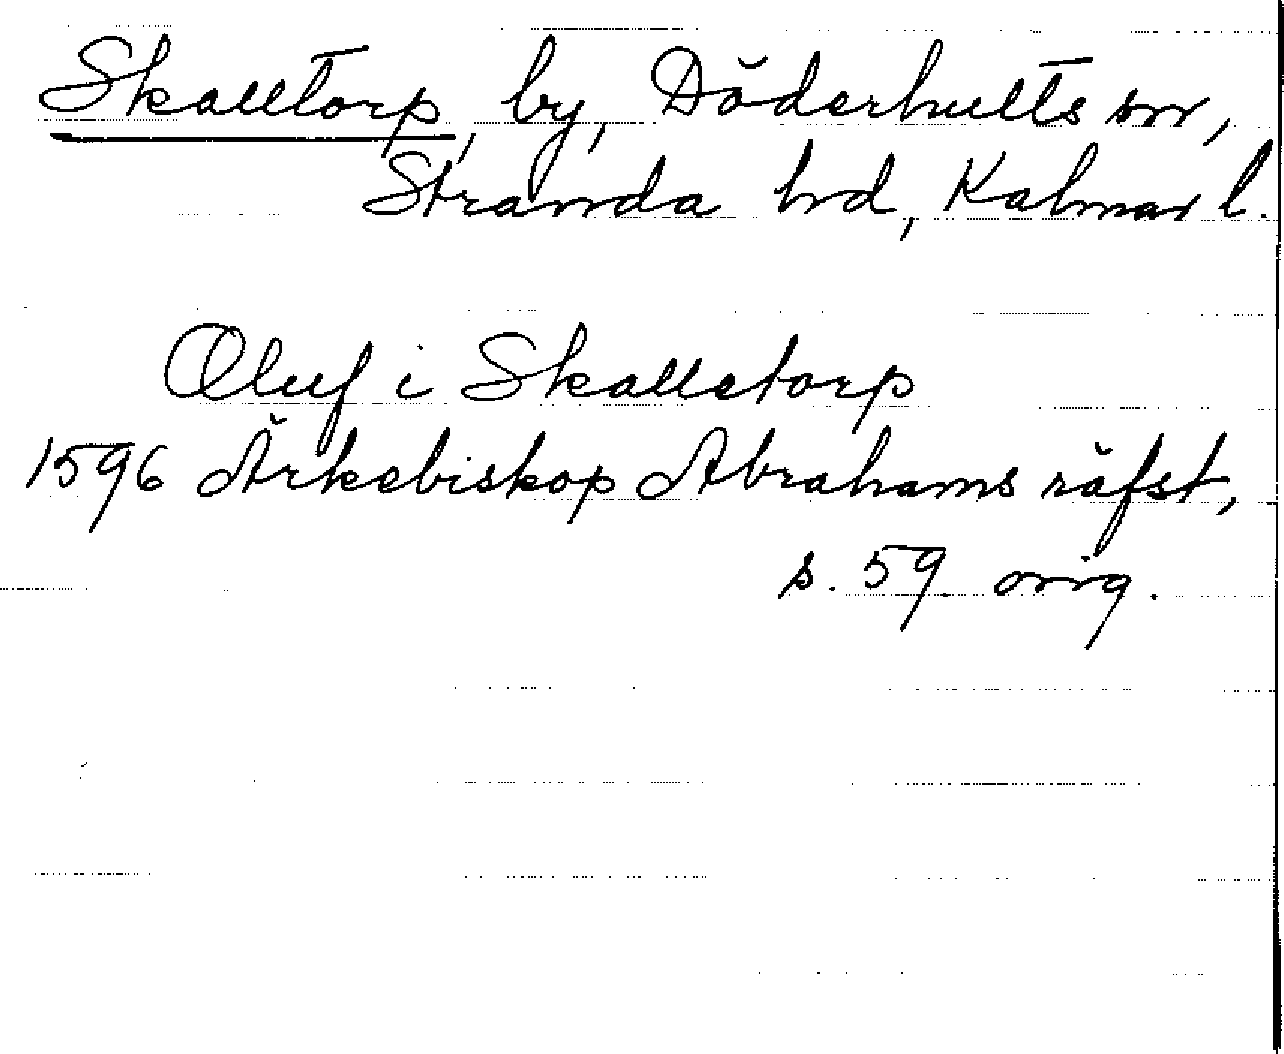 Skalltorp, by, Döderhults sn,
Stranda hd, Kalmar l.
Oluf i Skalletorp
1596 Ärkebiskop Abrahams räfst,
s. 59. orig.